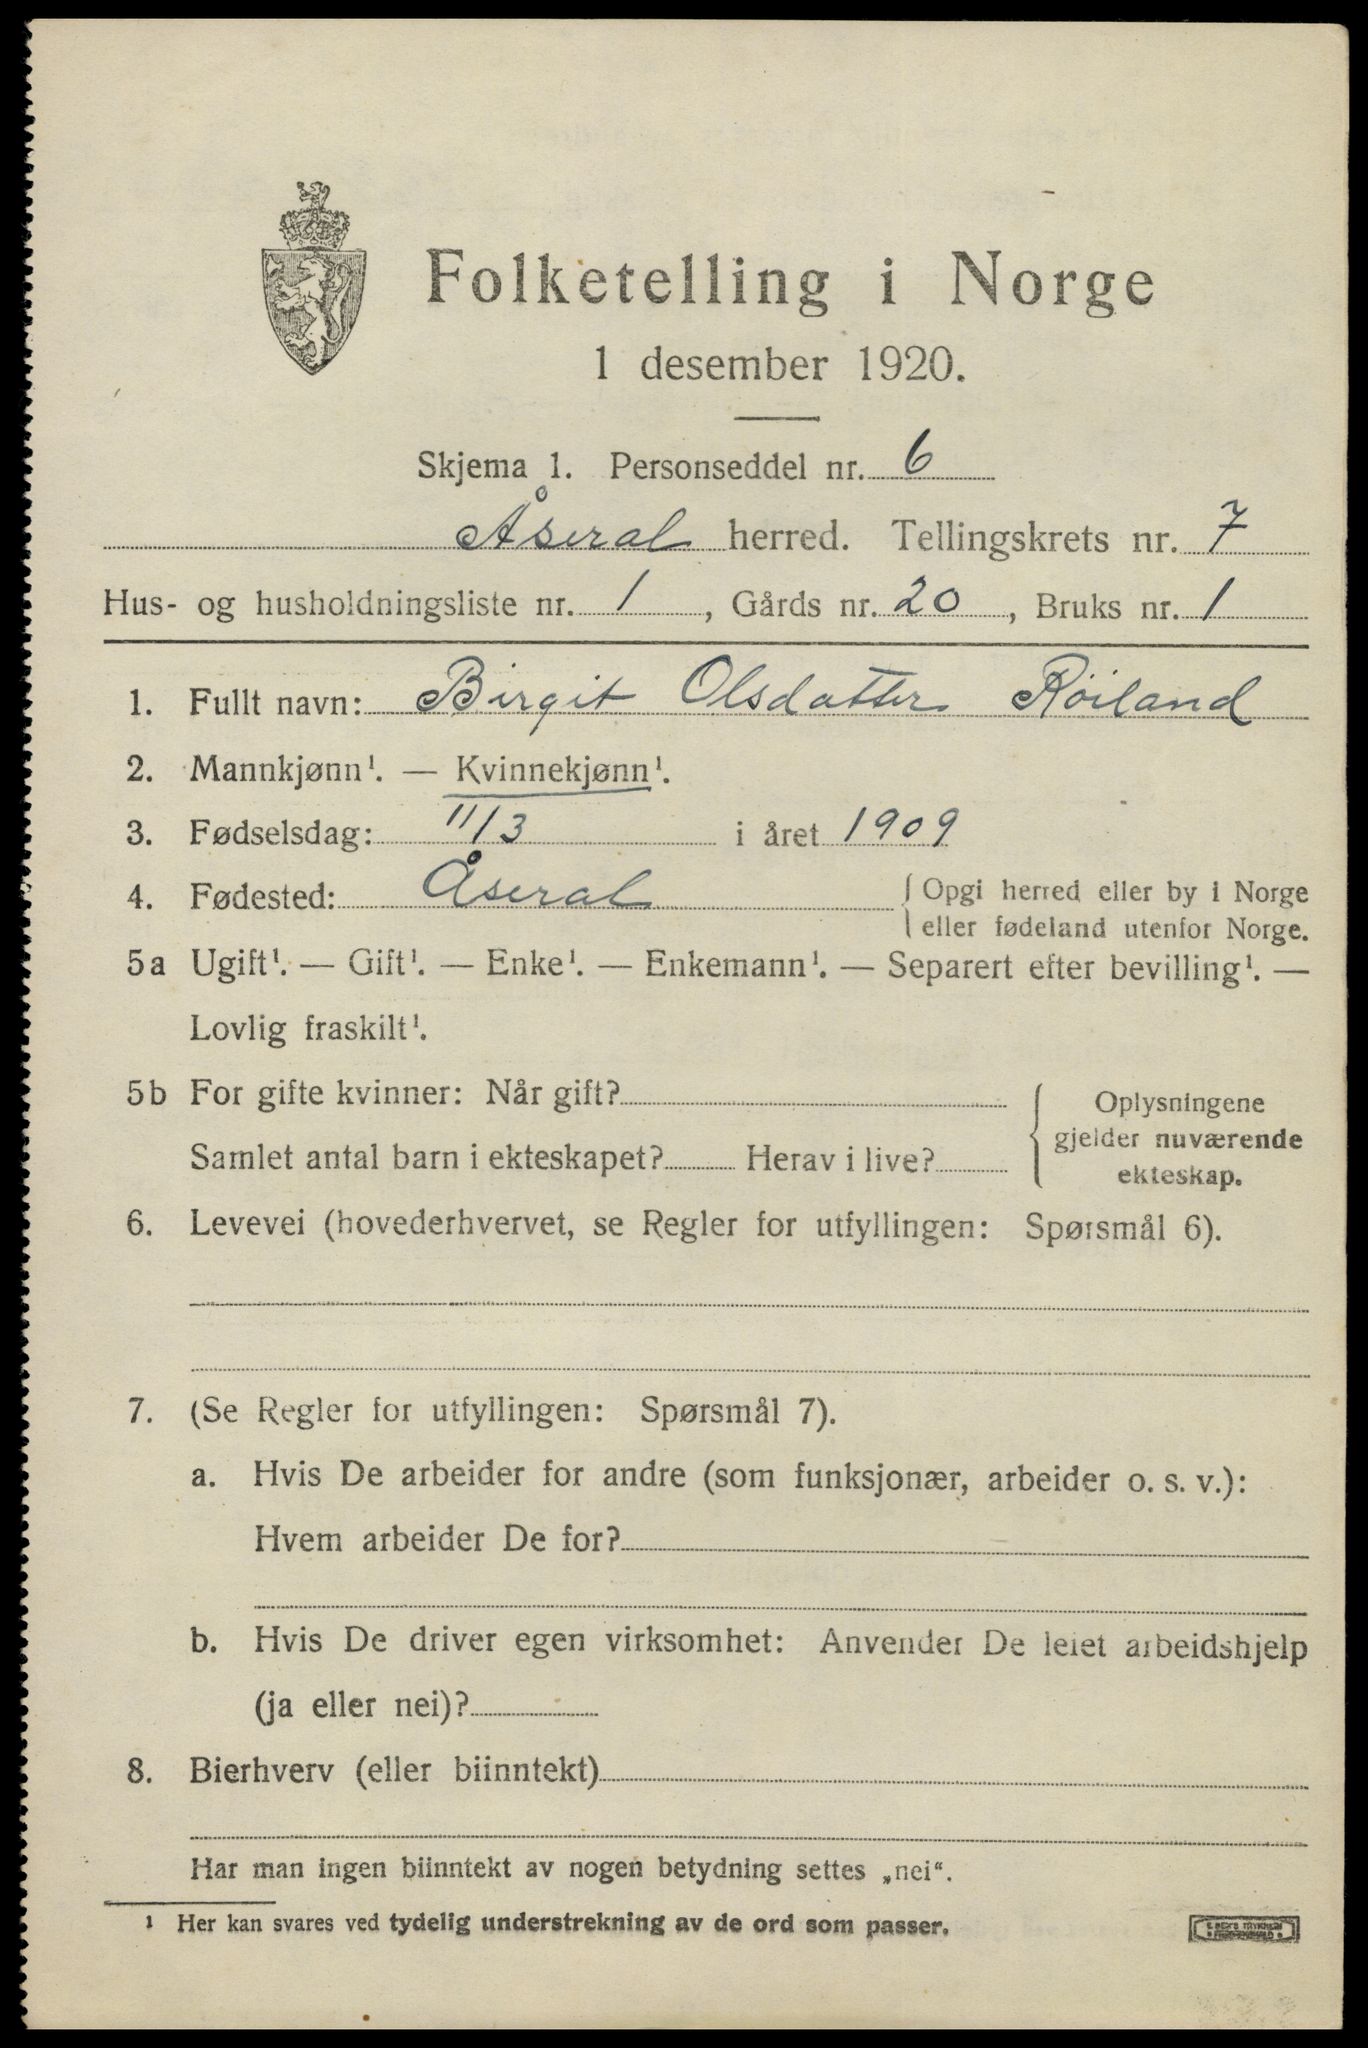 Folketelling i Norge
1 desember 1920.
Skjema 1. Personseddel nr. 6
Åseral herred. Tellingskrets nr. 7
Hus- og husholdningsliste nr. 1, Gårds nr. 20, Bruks nr. 1
1. Fullt navn: Birgit Olsdatter Röiland
2. Mannkjønn¹. — Kvinnekjønn¹.
3. Fødselsdag: 11/3 i året 1909
4. Fødested: Åseral { Opgi herred eller by i Norge
eller fødeland utenfor Norge.
5a Ugift¹. — Gift¹. — Enke¹. — Enkemann¹. — Separert efter bevilling¹. —
Lovlig fraskilt¹.
5b For gifte kvinner: Når gift?
Samlet antal barn i ekteskapet? Herav i live?
Oplysningene
gjelder nuværende
ekteskap.
6. Levevei (hovederhvervet, se Regler for utfyllingen: Spørsmål 6).
7. (Se Regler for utfyllingen: Spørsmål 7).
a. Hvis De arbeider for andre (som funksjonær, arbeider o. s. v.):
Hvem arbeider De for?
b. Hvis De driver egen virksomhet: Anvender De leiet arbeidshjelp
(ja eller nei)?
8. Bierhverv (eller biinntekt)
Har man ingen biinntekt av nogen betydning settes „nei“.
¹ Her kan svares ved tydelig understrekning av de ord som passer.